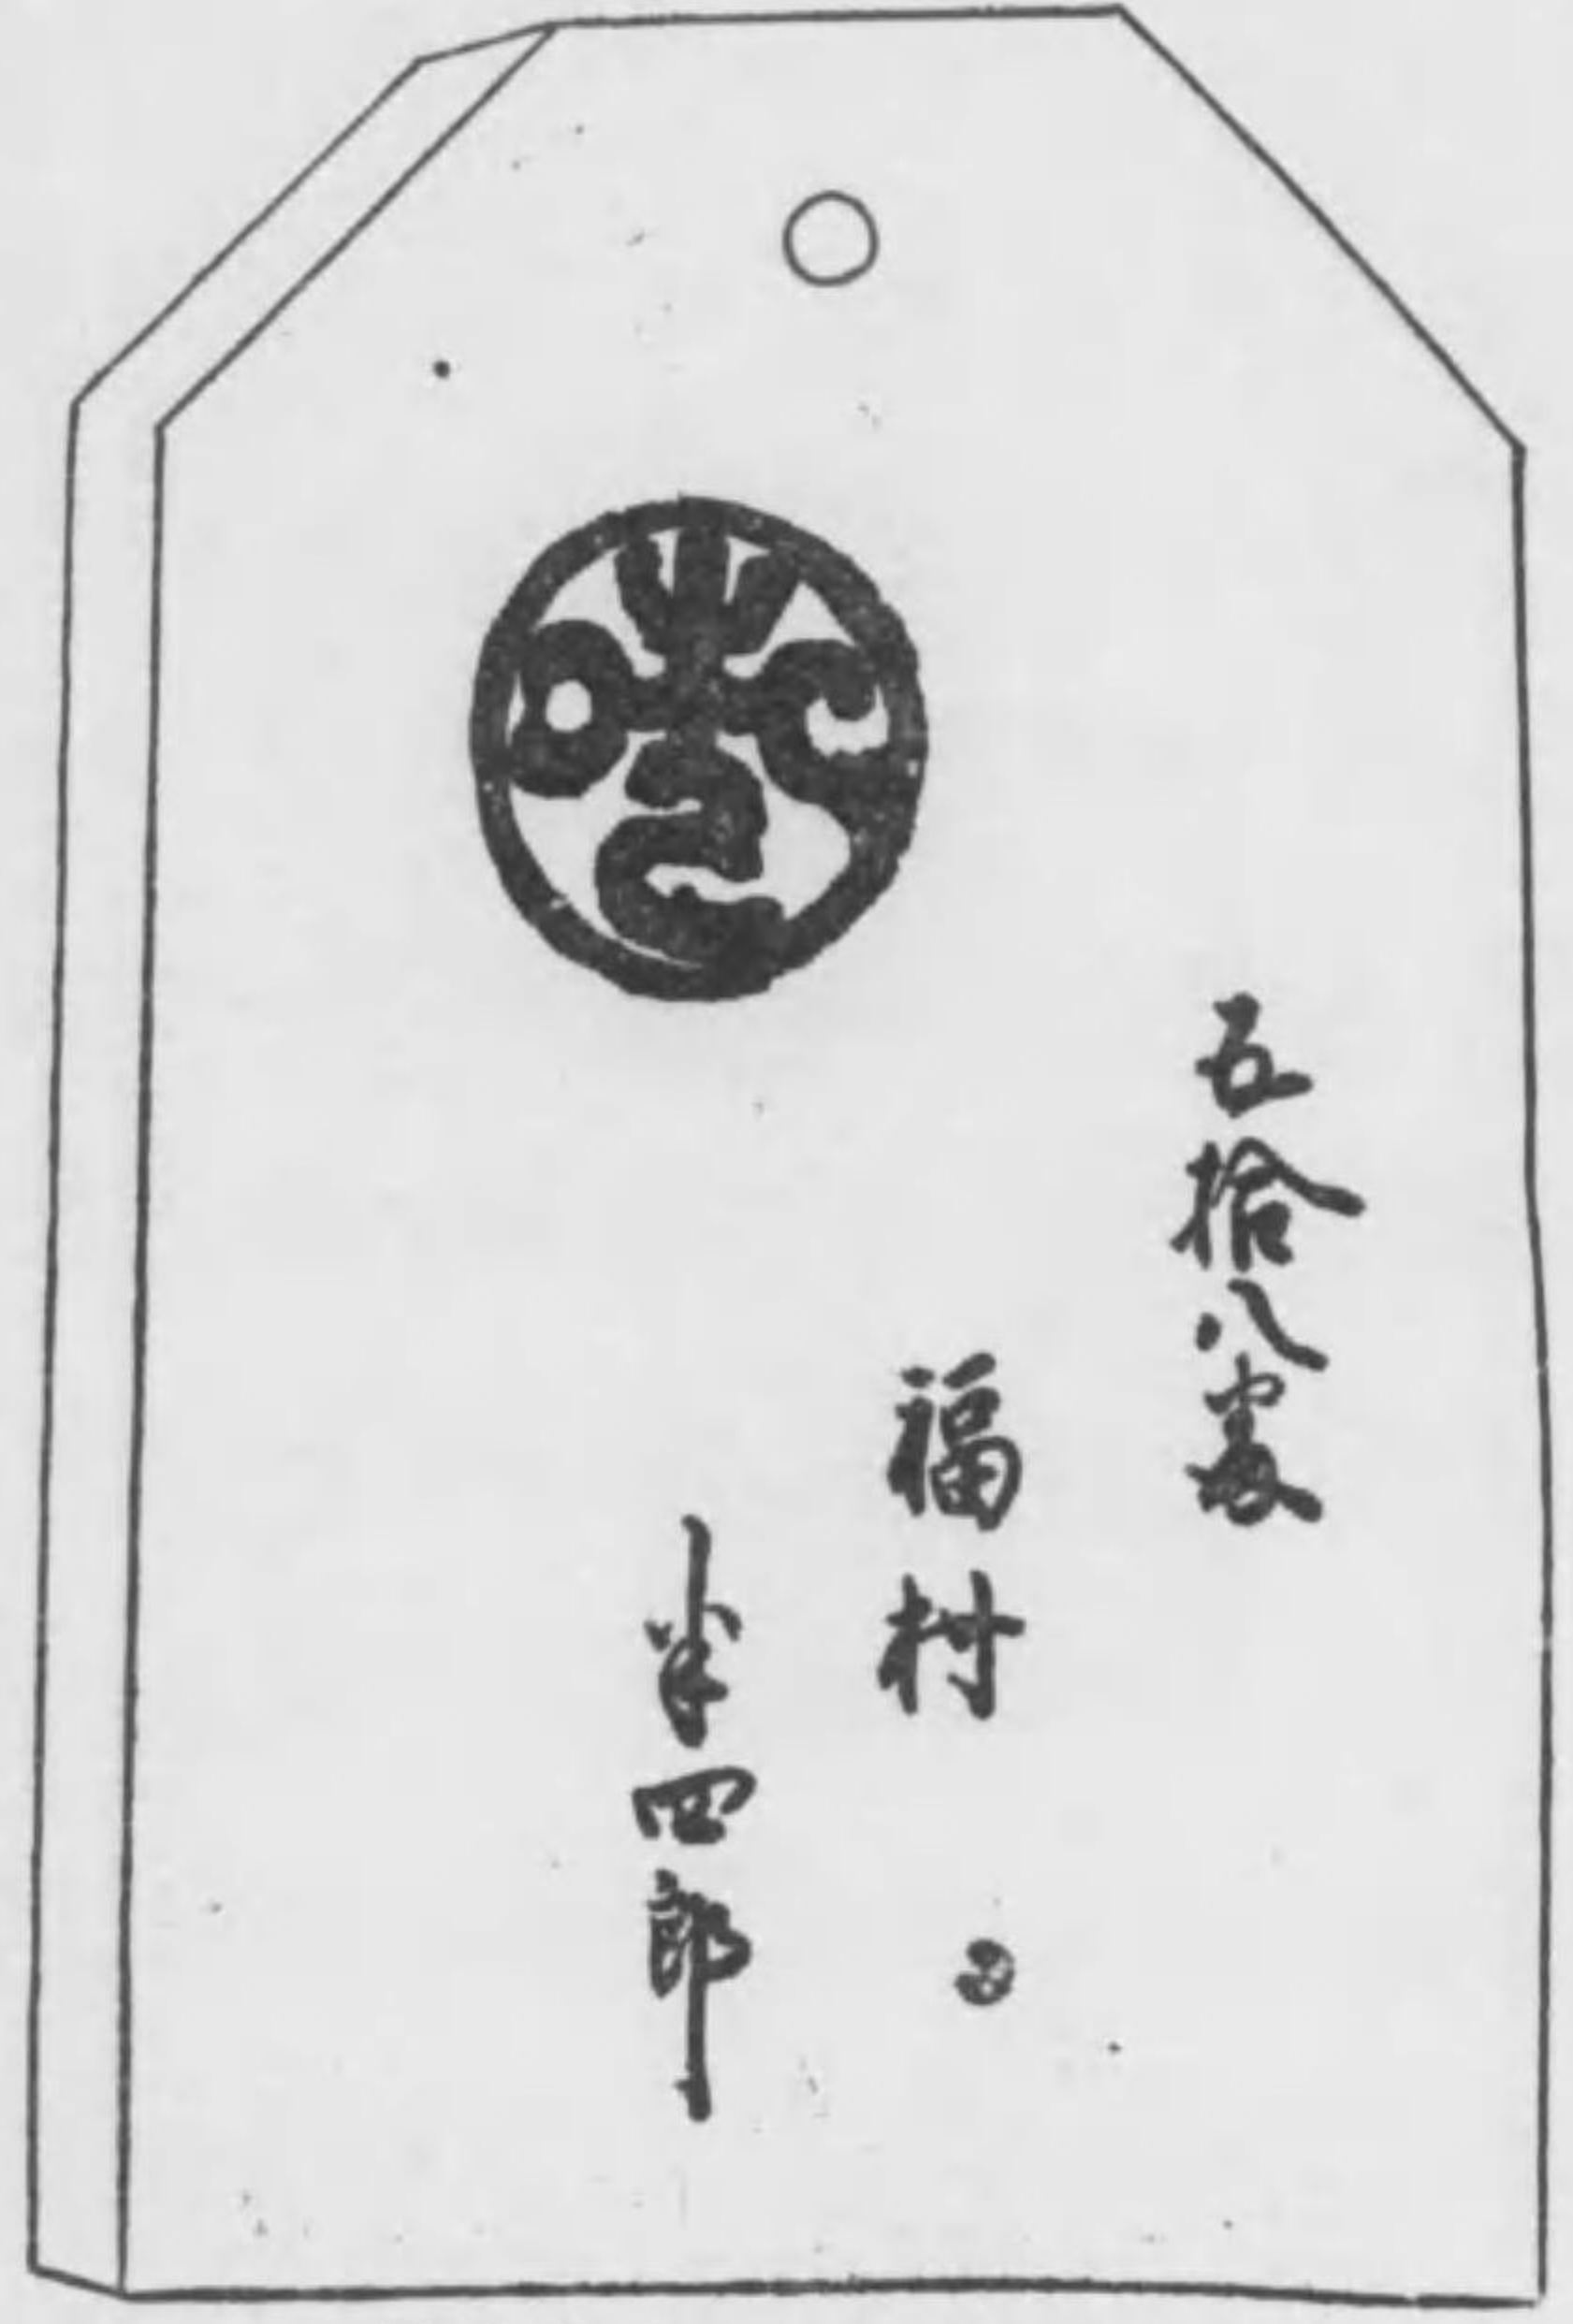 五拾八
福村
半四郎